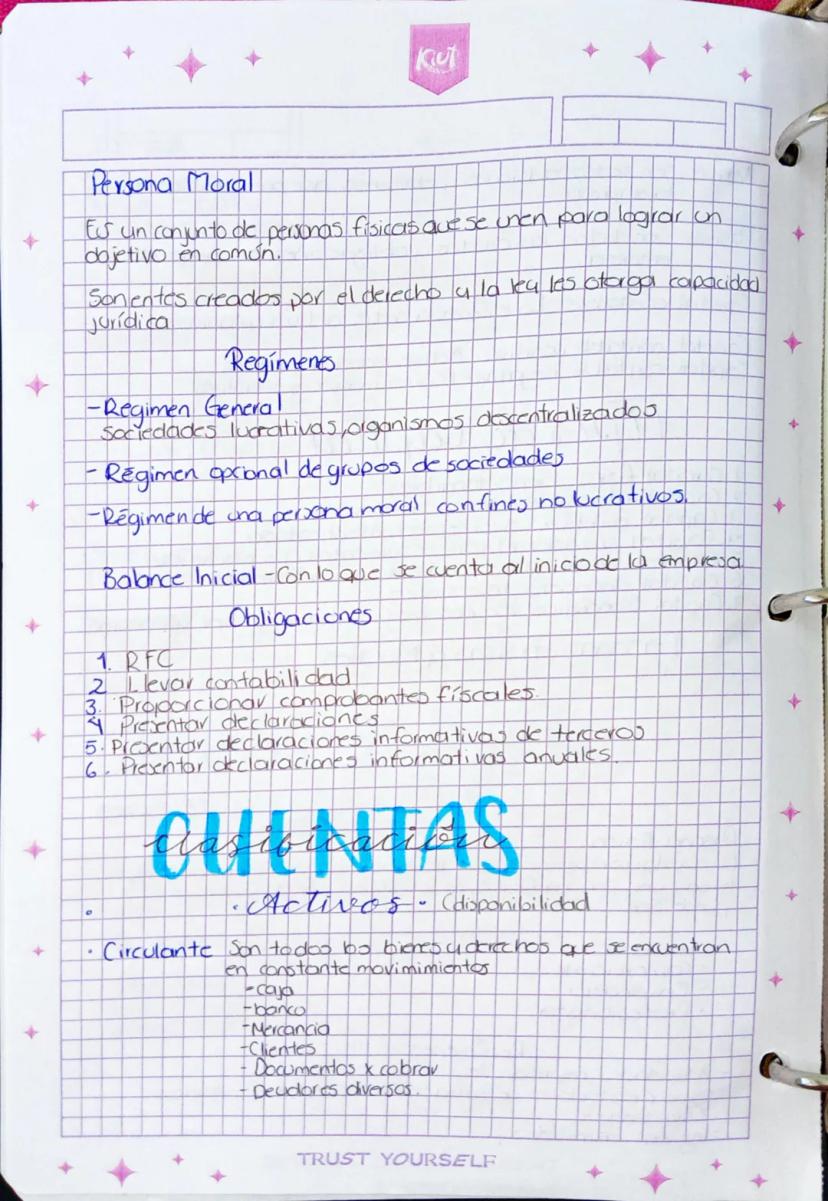 Kiut
Persona Moral
Es un conjunto de personas físicas que se unen para lograr un
objetivo en común.
Son entes creados por el derecho y la ley les otorga capacidad
jurídica
Regímenes
-Regimen General
sociedades lucrativas, organismos descentralizados
- Régimen opcional de grupos de sociedades
-Régimen de una persona moral con fines no lucrativos.
Balance Inicial -Con lo que se cuenta al inicio de la empresa
Obligaciones
1. RFC
2 Llevar contabilidad
3. Proporcionar comprobantes físcales.
4 Presentar declaraciones
5. Presentar declaraciones informativas de terceros
6. Presentar declaraciones informativas anuales.
CUENTAS
clasificación
· Activos · (disponibilidad
· Circulante Son todos los bienes y derechos que se encuentran
en constante movimimientos
-caja
-banco
-Mercancia
-Clientes
- Documentos x cobrar
- Deudores diversos.
TRUST YOURSELF